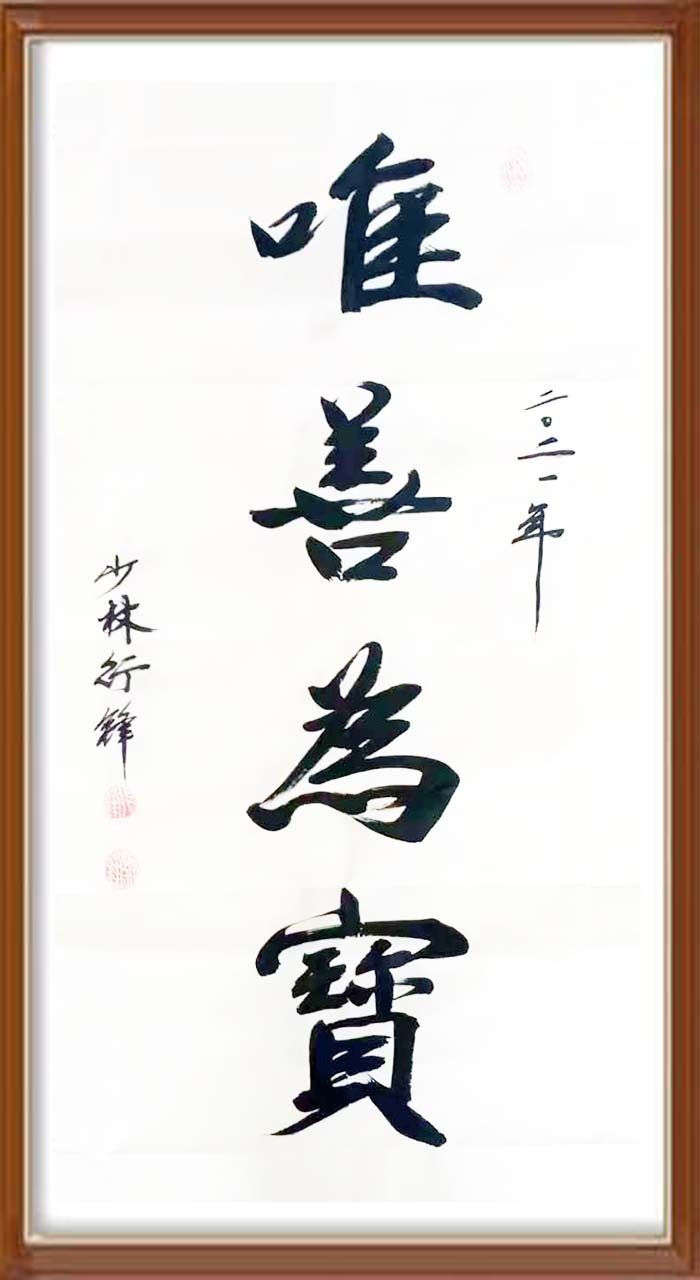 唯善為寶
二〇二一年
少林行鋒